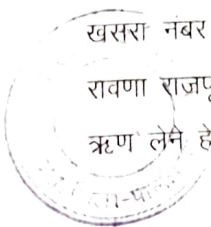 खसरा नंबर
रावणा राजपू
ऋण लेने हे
ता-पा